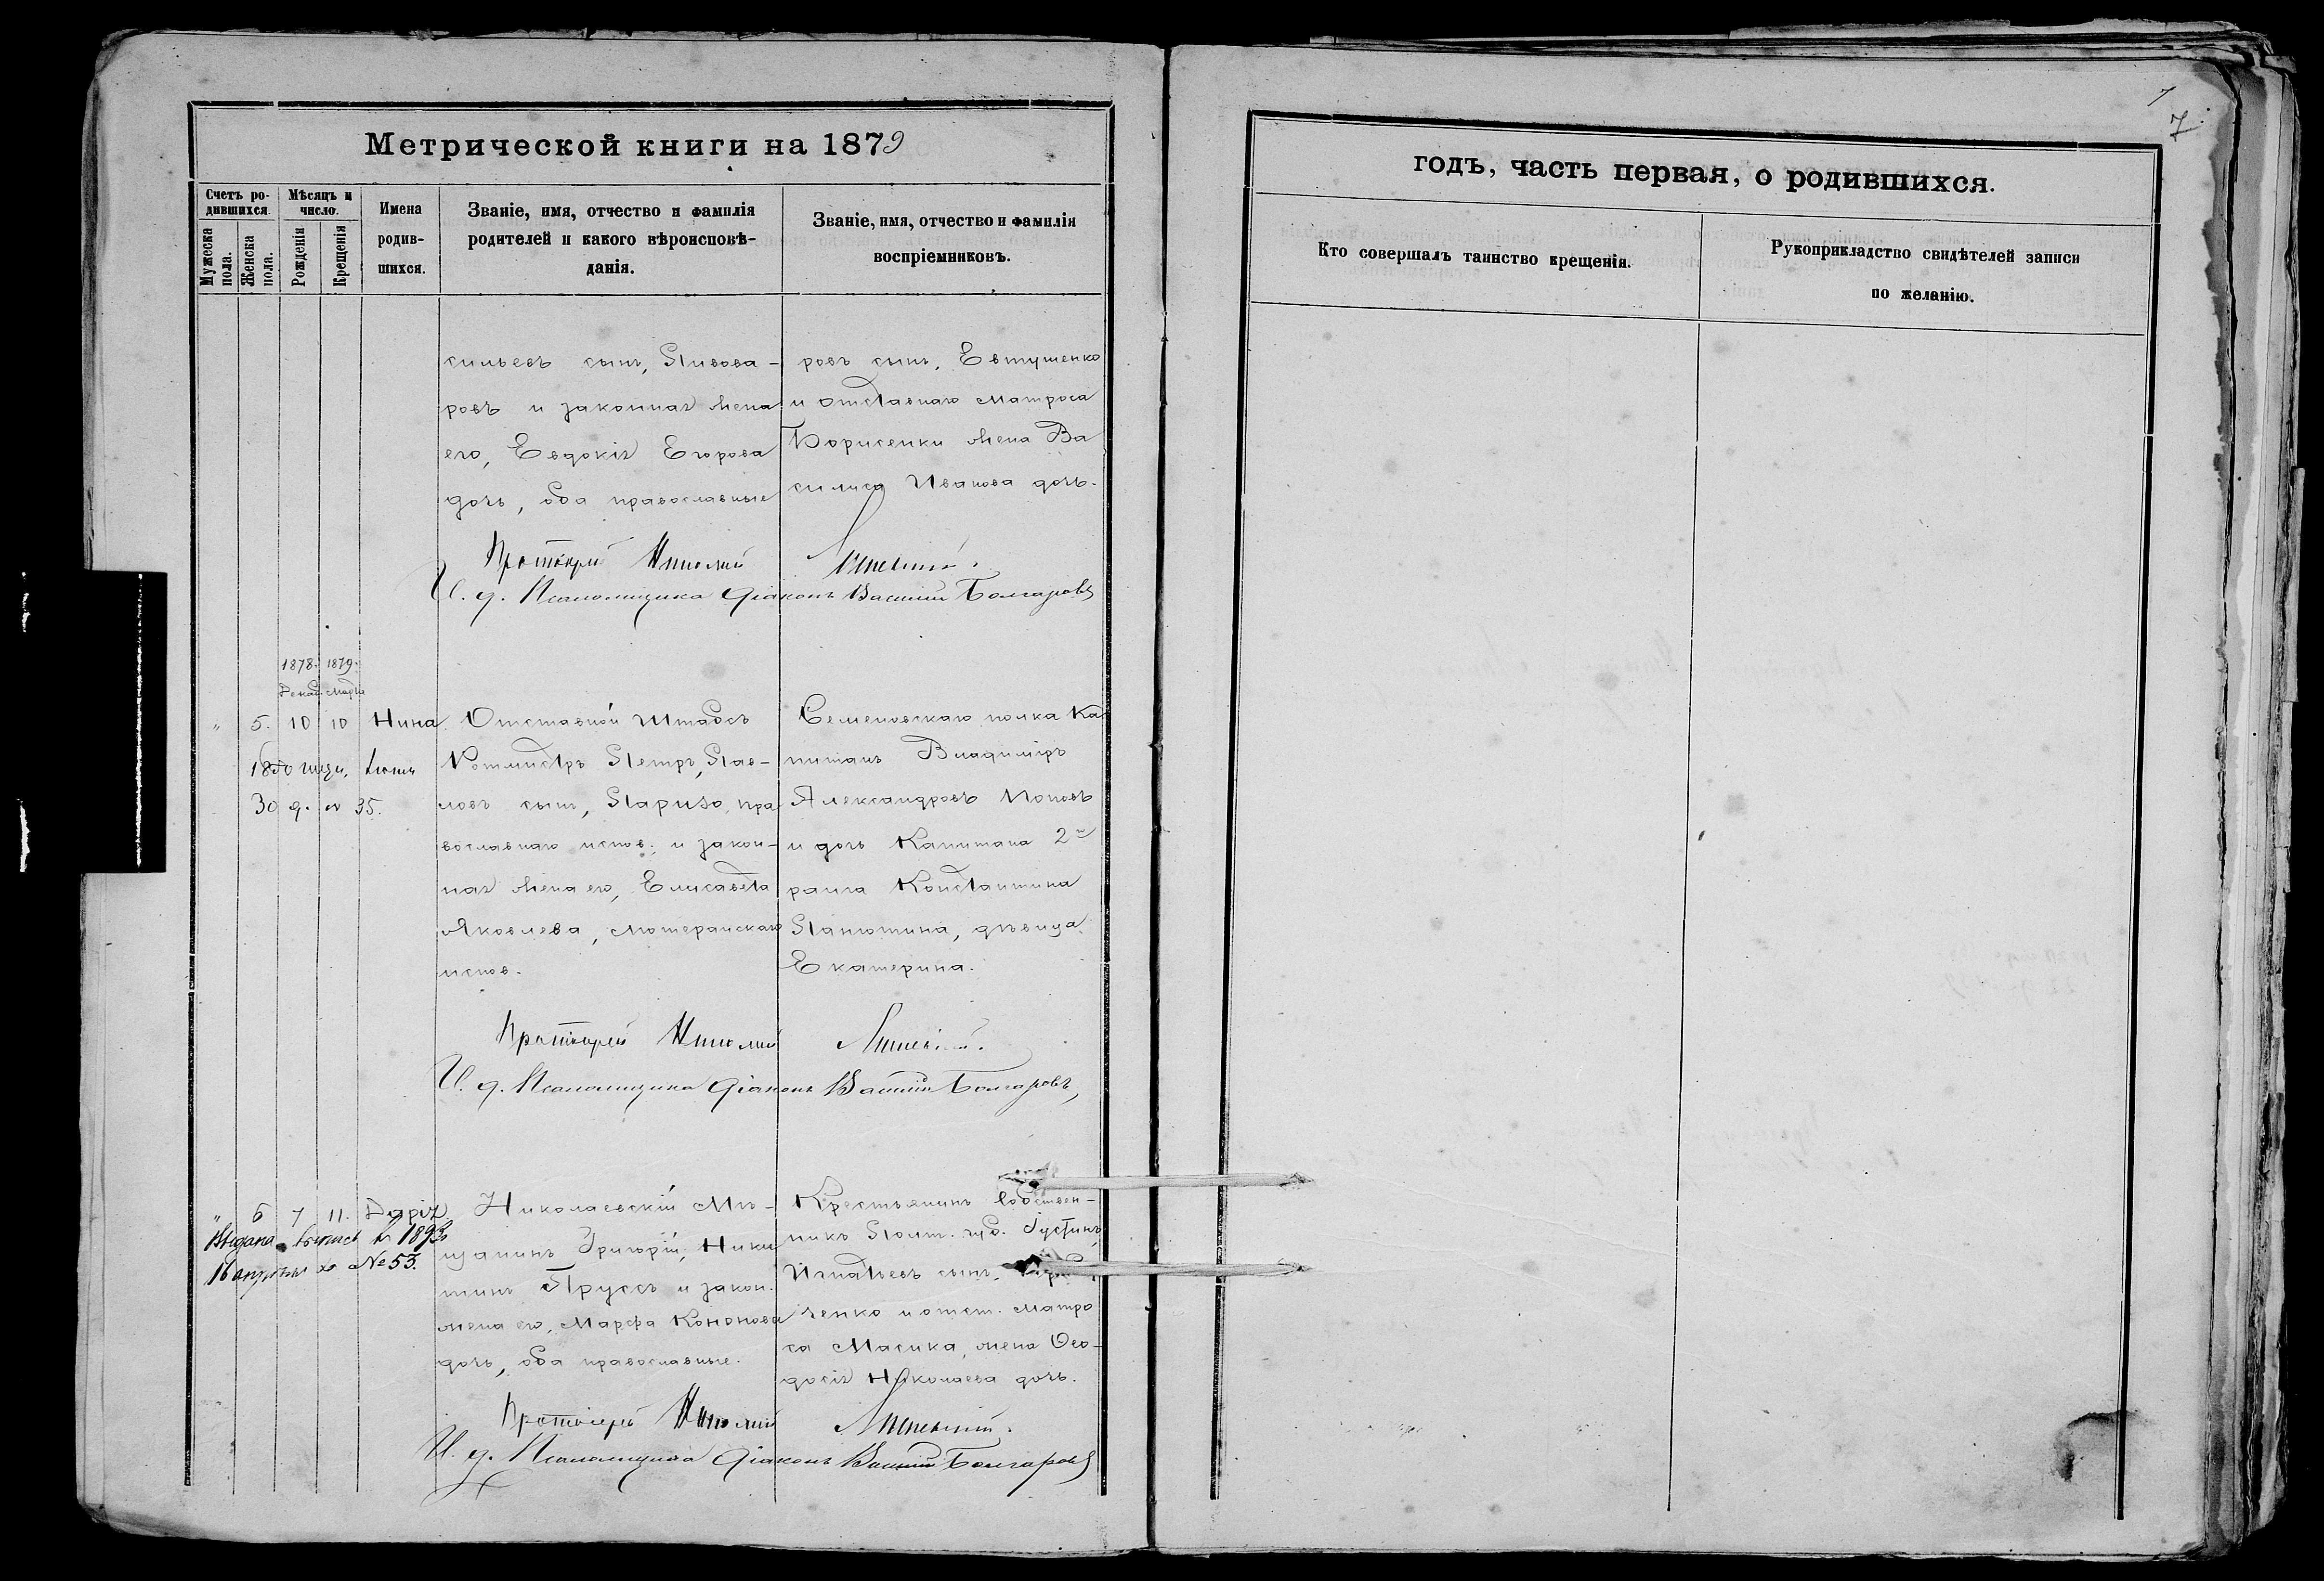 Метрической книги на 1879
Счетъ ро-
дившихся.
Мѣсяцъ и
число.
Мужеска
пола.
Женска
пола.
Рожденія
Крещенія
Имена
родив-
шихся.
Званіе, имя, отчество и фамилія
родителей и какого вѣроисповѣ-
данія.
Званіе, имя, отчество и фамилія
воспріемниковъ.
сильевъ сынъ, Пивова-
ровъ и законная жена
его, Евдокія Егорова
дочь, оба православные
ровъ сынъ, Евтушенко
и отставнаго матроса
Борисенки жена Ва
силиса Иванова дочь.
Протоіерей Николай
И. д. Псаломщика Діаконъ Василій Болгаровъ
1878. 1879.
Декаб. Марта
" 5. 10 10 Нина
30 д. № 35.
Отставной Штабсъ
Ротмистръ Петръ, Пав-
ловъ сынъ, пра
вославнаго испов. и закон-
ная жена его, Елисавета
Яковлева, лютеранскаго
испов.
Семеновскаго полка Ка
питанъ Владиміръ
Александровъ Поповъ
и дочь Капитана 2го
ранга Константина
Панютина, дѣвица
Екатерина.
Протоіерей Николай
И. д. Псаломщика Діаконъ Василій Болгаровъ,
" 6 7 11. Дарія
Выдана выпись въ 1893
16 апрѣля за №53.
Николаевскій Мѣ-
щанинъ Григорій, Ники
тинъ Пруссъ и закон.
жена его, Марфа Кононова
дочь, оба православные.
Крестьянинъ собствен-
никъ Полт. губ. Густинъ
Игнатьевъ сынъ,
ченко и отст. матро
са Масика, жена Ѳео-
досія Николаева дочь.
Протоіерей Николай
И. д. Псаломщика Діаконъ Василій Болгаровъ
7
7.
годъ, часть первая, о родившихся.
Кто совершалъ таинство крещенія.
Рукоприкладство свидѣтелей записи
по желанію.